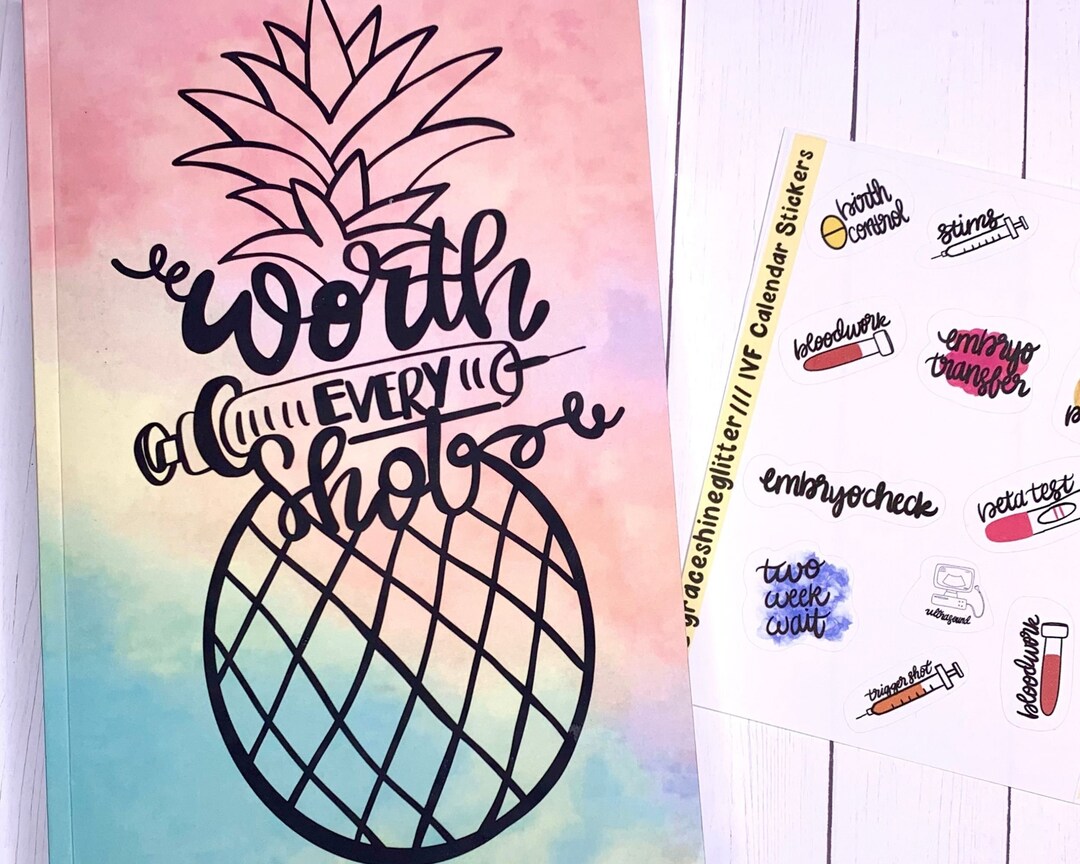 worth
EVERY
shot
graceshineglitter/// IVF Calendar Stickers
birth
control
stims
bloodwork
embryo
transfer
embryo check
beta test
two
week
wait
ultrasound
trigger shot
bloodwork